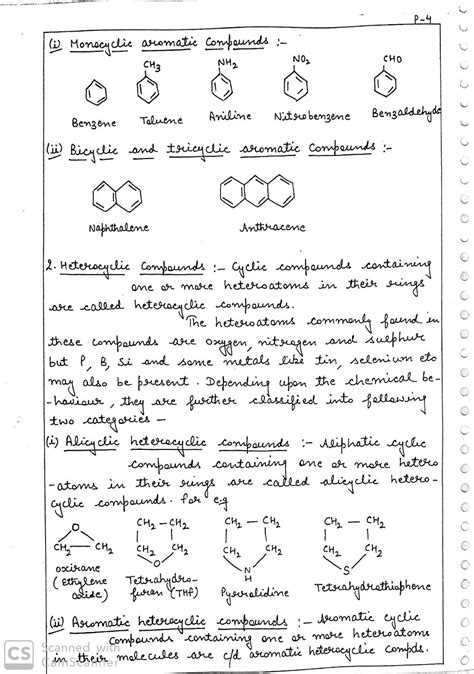 P-4
(i) Monocyclic aromatic Compounds :-
CH3 NH2 NO2 CHO
Benzene Toluene Aniline Nitrobenzene Benzaldehyde
(ii) Bicyclic and tricyclic aromatic Compounds :-
Naphthalene Anthracene
2. Heterocyclic Compounds :- Cyclic compounds containing
one or more heteroatoms in their rings
are called heterocyclic compounds.
The heteroatoms commonly found in
these compounds are oxygen, nitrogen and sulphur
but P, B, Si and some metals like tin, selenium etc
may also be present. Depending upon the chemical be-
-haviour, they are further classified into following
two categories -
(i) Alicyclic heterocyclic compounds :- Aliphatic cyclic
compounds containing one or more hetero
-atoms in their rings are called alicyclic hetero-
cyclic compounds. For e.g
O CH2 - CH2 CH2 - CH2 CH2 - CH2
CH2 - CH2 CH2 CH2 CH2 CH2 CH2 CH2
O N S
H
oxirane
(Ethylene
oxide)
Tetrahydro-
furan (THF)
Pyrrolidine
Tetrahydrothiophene
(ii) Aromatic heterocyclic compounds :- Aromatic cyclic
Compounds containing one or more heteroatoms
in their molecules are c/d aromatic heterocyclic Compds.
CS Scanned with
CamScanner